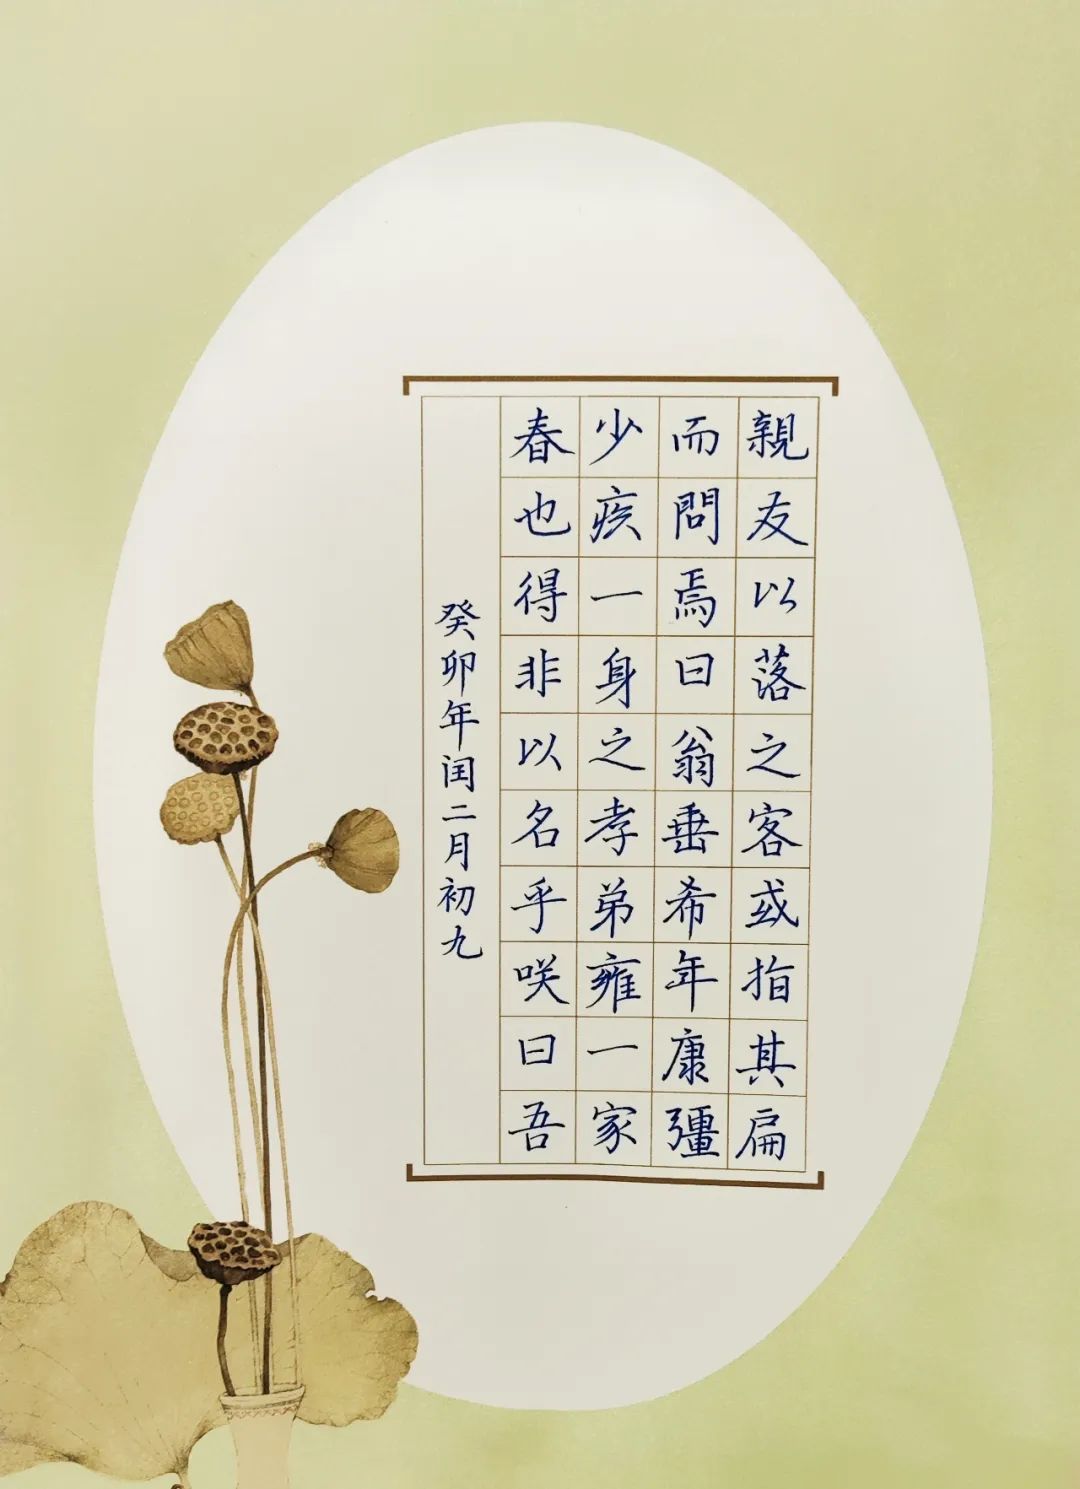 親友以落之客或指其扁
而問焉曰翁垂希年康彊
少疾一身之孝弟雍一家
春也得非以名乎咲曰吾
癸卯年闰二月初九